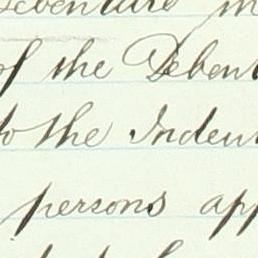 Debenture
of the Deben
to the Inden
persons app